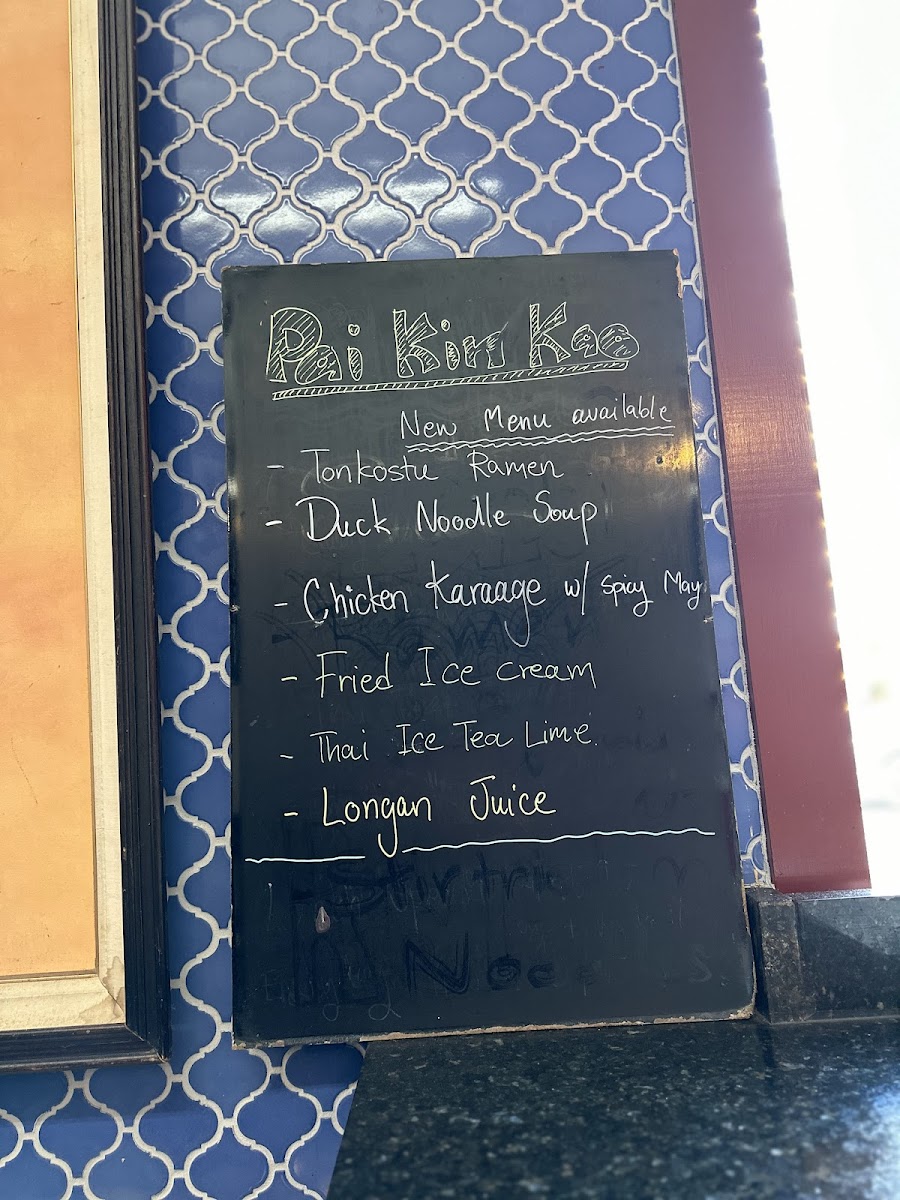 Pai Kin Kao
New Menu available
- Tonkostu Ramen
- Duck Noodle Soup
- Chicken Karaage w/ Spicy May
- Fried Ice cream
- Thai Ice Tea Lime.
- Longan Juice